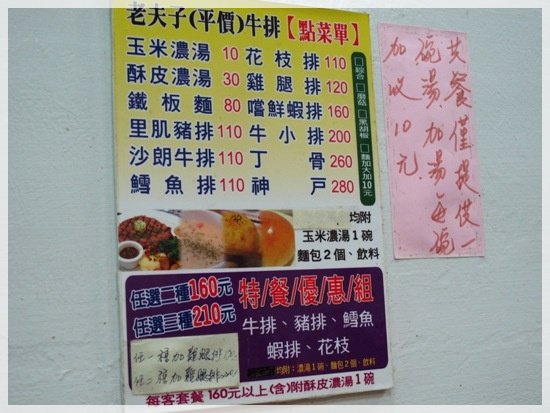 老夫子(平價)牛排【點菜單】
玉米濃湯 10 花枝排 110
酥皮濃湯 30 雞腿排 120
鐵板麵 80 嚐鮮蝦排 160
里肌豬排 110 牛小排 200
沙朗牛排 110 丁骨 260
鱈魚排 110 神戶 280
□綜合 □磨菇 □黑胡椒 □麵加大加10元
均附
玉米濃湯1碗
麵包2個、飲料
任選二種160元
任選三種210元
特/餐/優/惠/組
牛排、豬排、鱈魚
蝦排、花枝
附:濃湯1碗、麵包2個、飲料
任一種加雞腿排
任二種加雞腿排
每客套餐160元以上(含)附酥皮濃湯1碗
共餐僅提供一
碗湯 加湯每碗
加收10元